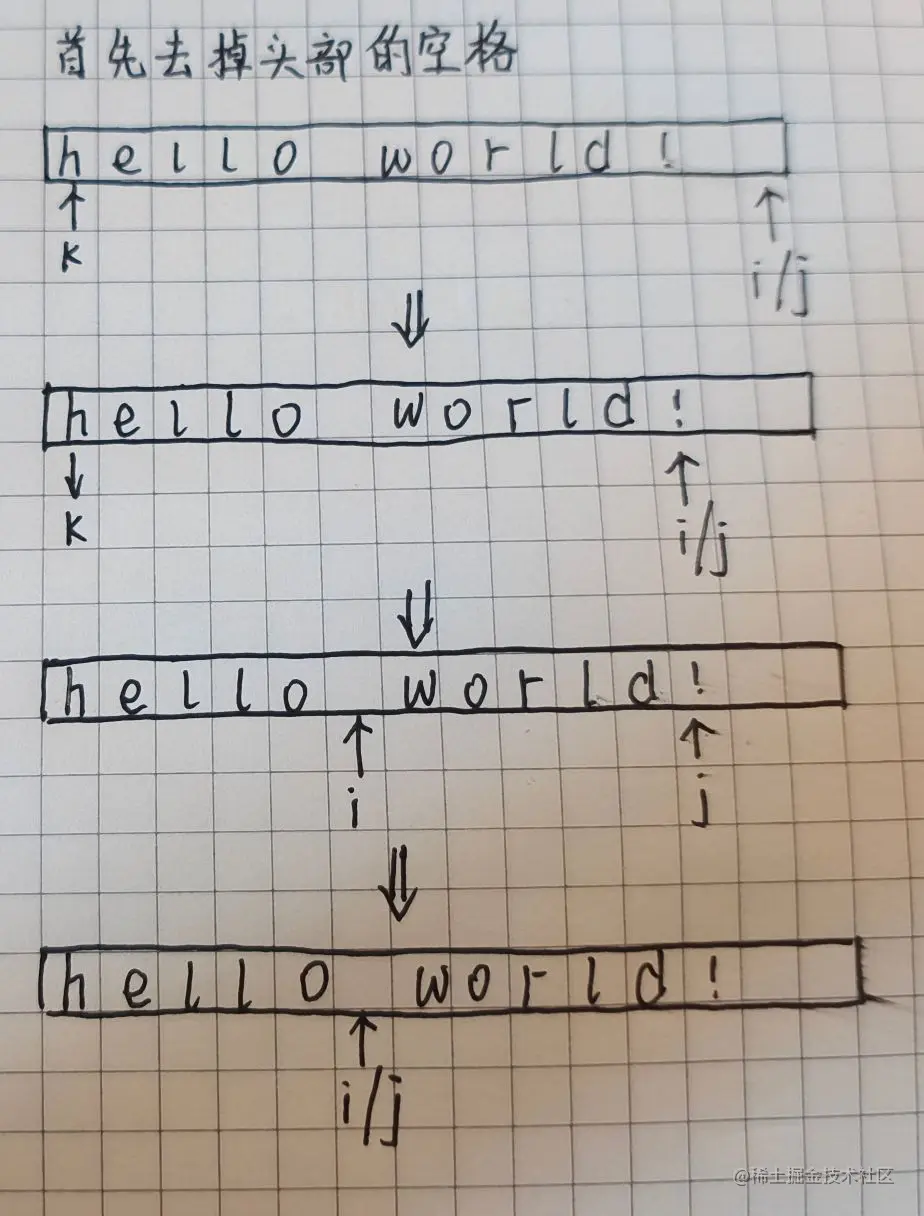 首先去掉头部的空格
hello world!
k
i/j
⇓
hello world!
k
i/j
⇓
hello world!
i
j
⇓
hello world!
i/j
@稀土掘金技术社区